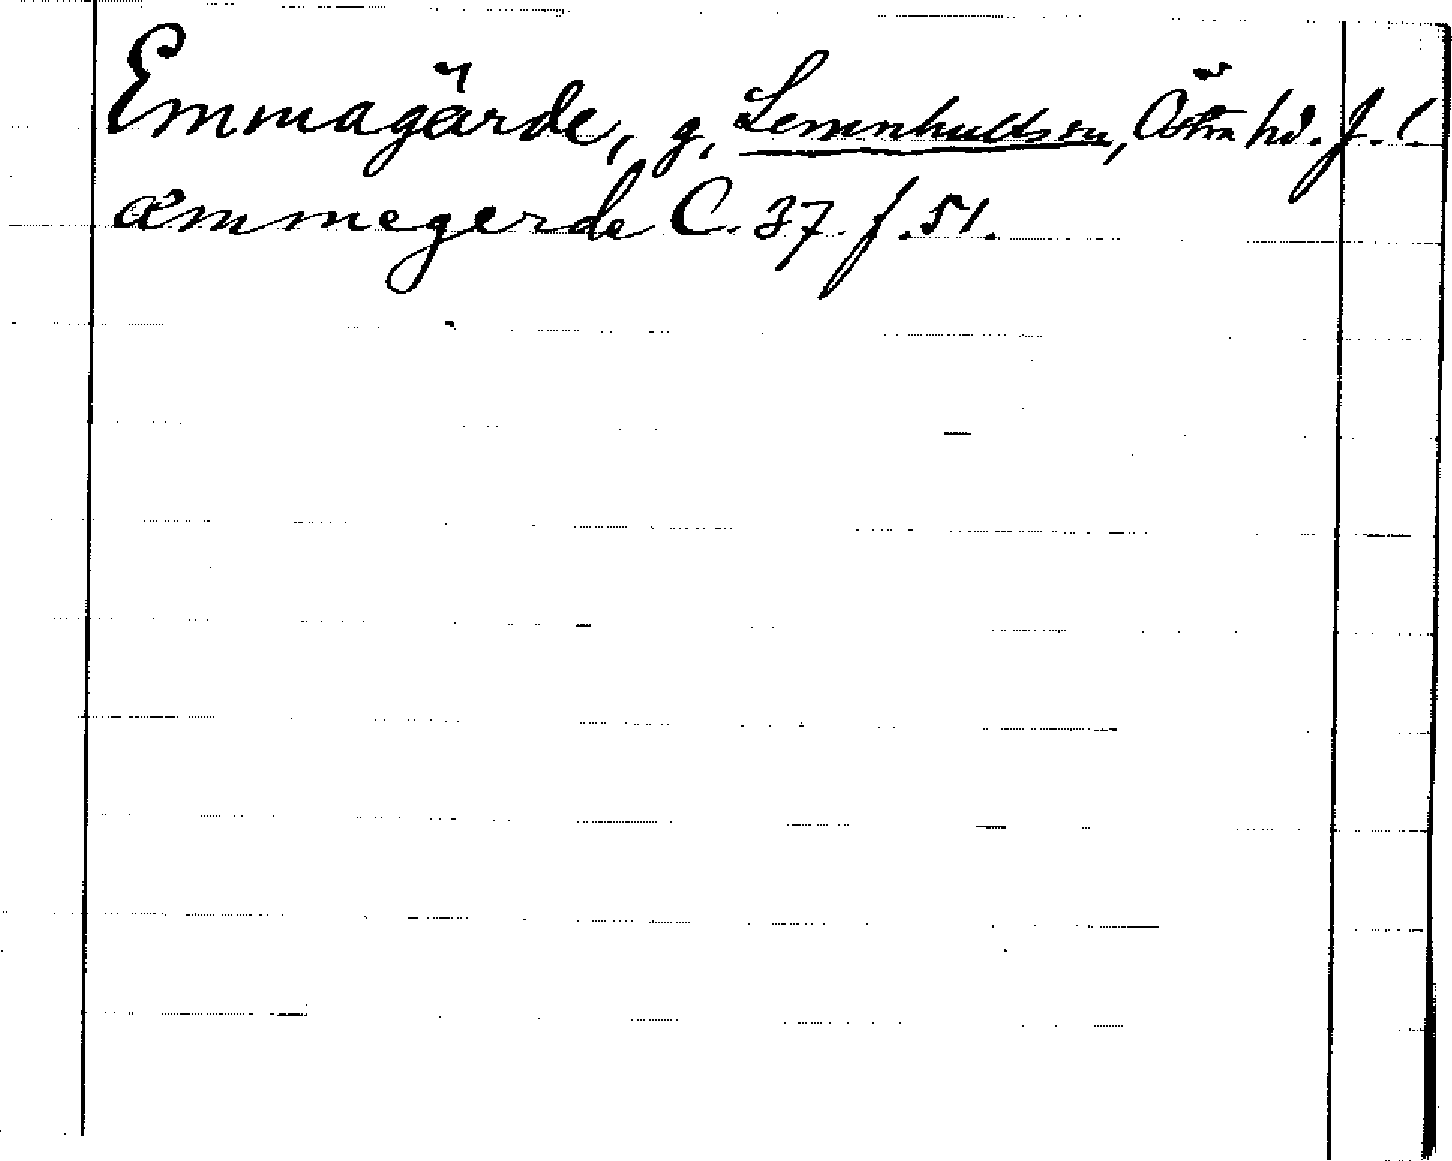 Emmagärde, g, Lemnhults sn, Östra hd. J. l.
æmmegerde C. 37 f. 51.